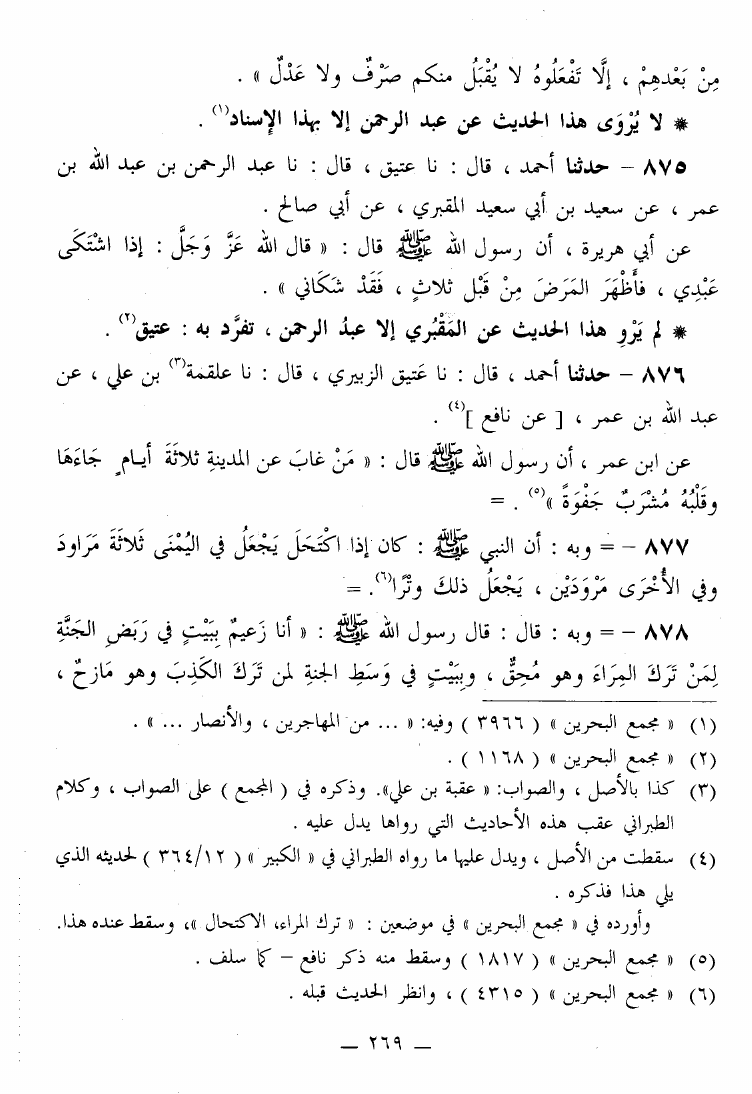 مِنْ بَعْدهِمْ ، إلَّا تَفْعَلُوهُ لا يُقْبَلُ منكم صَرْفٌ ولا عَدْلٌ » .
* لا يُرْوَى هذا الحديث عن عبد الرحمن إلا بهذا الإسناد(١) .
٨٧٥ – حدثنا أحمد ، قال : نا عتيق ، قال : نا عبد الرحمن بن عبد الله بن
عمر ، عن سعيد بن أبي سعيد المقبري ، عن أبي صالح .
عن أبي هريرة ، أن رسول الله ﷺ قال : « قال الله عَزَّ وَجَلَّ : إذا اشْتَكَى
عَبْدِي ، فأَظْهَرَ المَرَضَ مِنْ قَبْل ثلاثٍ ، فَقَدْ شَكَاني » .
* لم يَرْوِ هذا الحديث عن المَقْبُري إلا عبدُ الرحمن ، تفرَّد به : عتيق(٢) .
٨٧٦ – حدثنا أحمد ، قال : نا عَتيق الزبيري ، قال : نا علقمة(٣) بن علي ، عن
عبد الله بن عمر ، [ عن نافع ](٤) .
عن ابن عمر ، أن رسول الله ﷺ قال : « مَنْ غابَ عن المدينةِ ثلاثَةَ أيـامٍ جَاءَهَا
وقَلْبُهُ مُشْرَبٌ جَفْوَةً »(٥) . =
٨٧٧ – = وبه : أن النبي ﷺ : كان إذا اكْتَحَلَ يَجْعَلُ في اليُمْنَى ثَلَاثَةَ مَرَاودَ
وفي الأُخْرَى مَرْوَدَيْن ، يَجْعَلُ ذلكَ وتْرًا(٦). =
٨٧٨ – = وبه : قال : قال رسول الله ﷺ : « أنا زَعيمٌ بِبَيْت في رَبَضِ الجَنَّةِ
لِمَنْ تَرَكَ المِرَاءَ وهو مُحِقٌّ ، وبِبَيْتٍ في وَسَطِ الجنةِ لمن تَرَكَ الكَذِبَ وهو مَازحٌ ،
(١) « مجمع البحرين » ( ٣٩٦٦ ) وفيه: « ... من المهاجرين ، والأنصار ... » .
(٢) « مجمع البحرين » ( ١١٦٨ ) .
(٣) كذا بالأصل ، والصواب: « عقبة بن علي». وذكره في ( المجمع ) على الصواب ، وكلام
الطبراني عقب هذه الأحاديث التي رواها يدل عليه .
(٤) سقطت من الأصل ، ويدل عليها ما رواه الطبراني في « الكبير » ( ٣٦٤/١٢ ) لحديثه الذي
يلي هذا فذكره .
وأورده في « مجمع البحرين » في موضعين : « ترك المراء، الاكتحال »، وسقط عنده هذا.
(٥) « مجمع البحرين » ( ١٨١٧ ) وسقط منه ذكر نافع – كما سلف .
(٦) « مجمع البحرين » ( ٤٣١٥ ) ، وانظر الحديث قبله .
– ٢٦٩ –